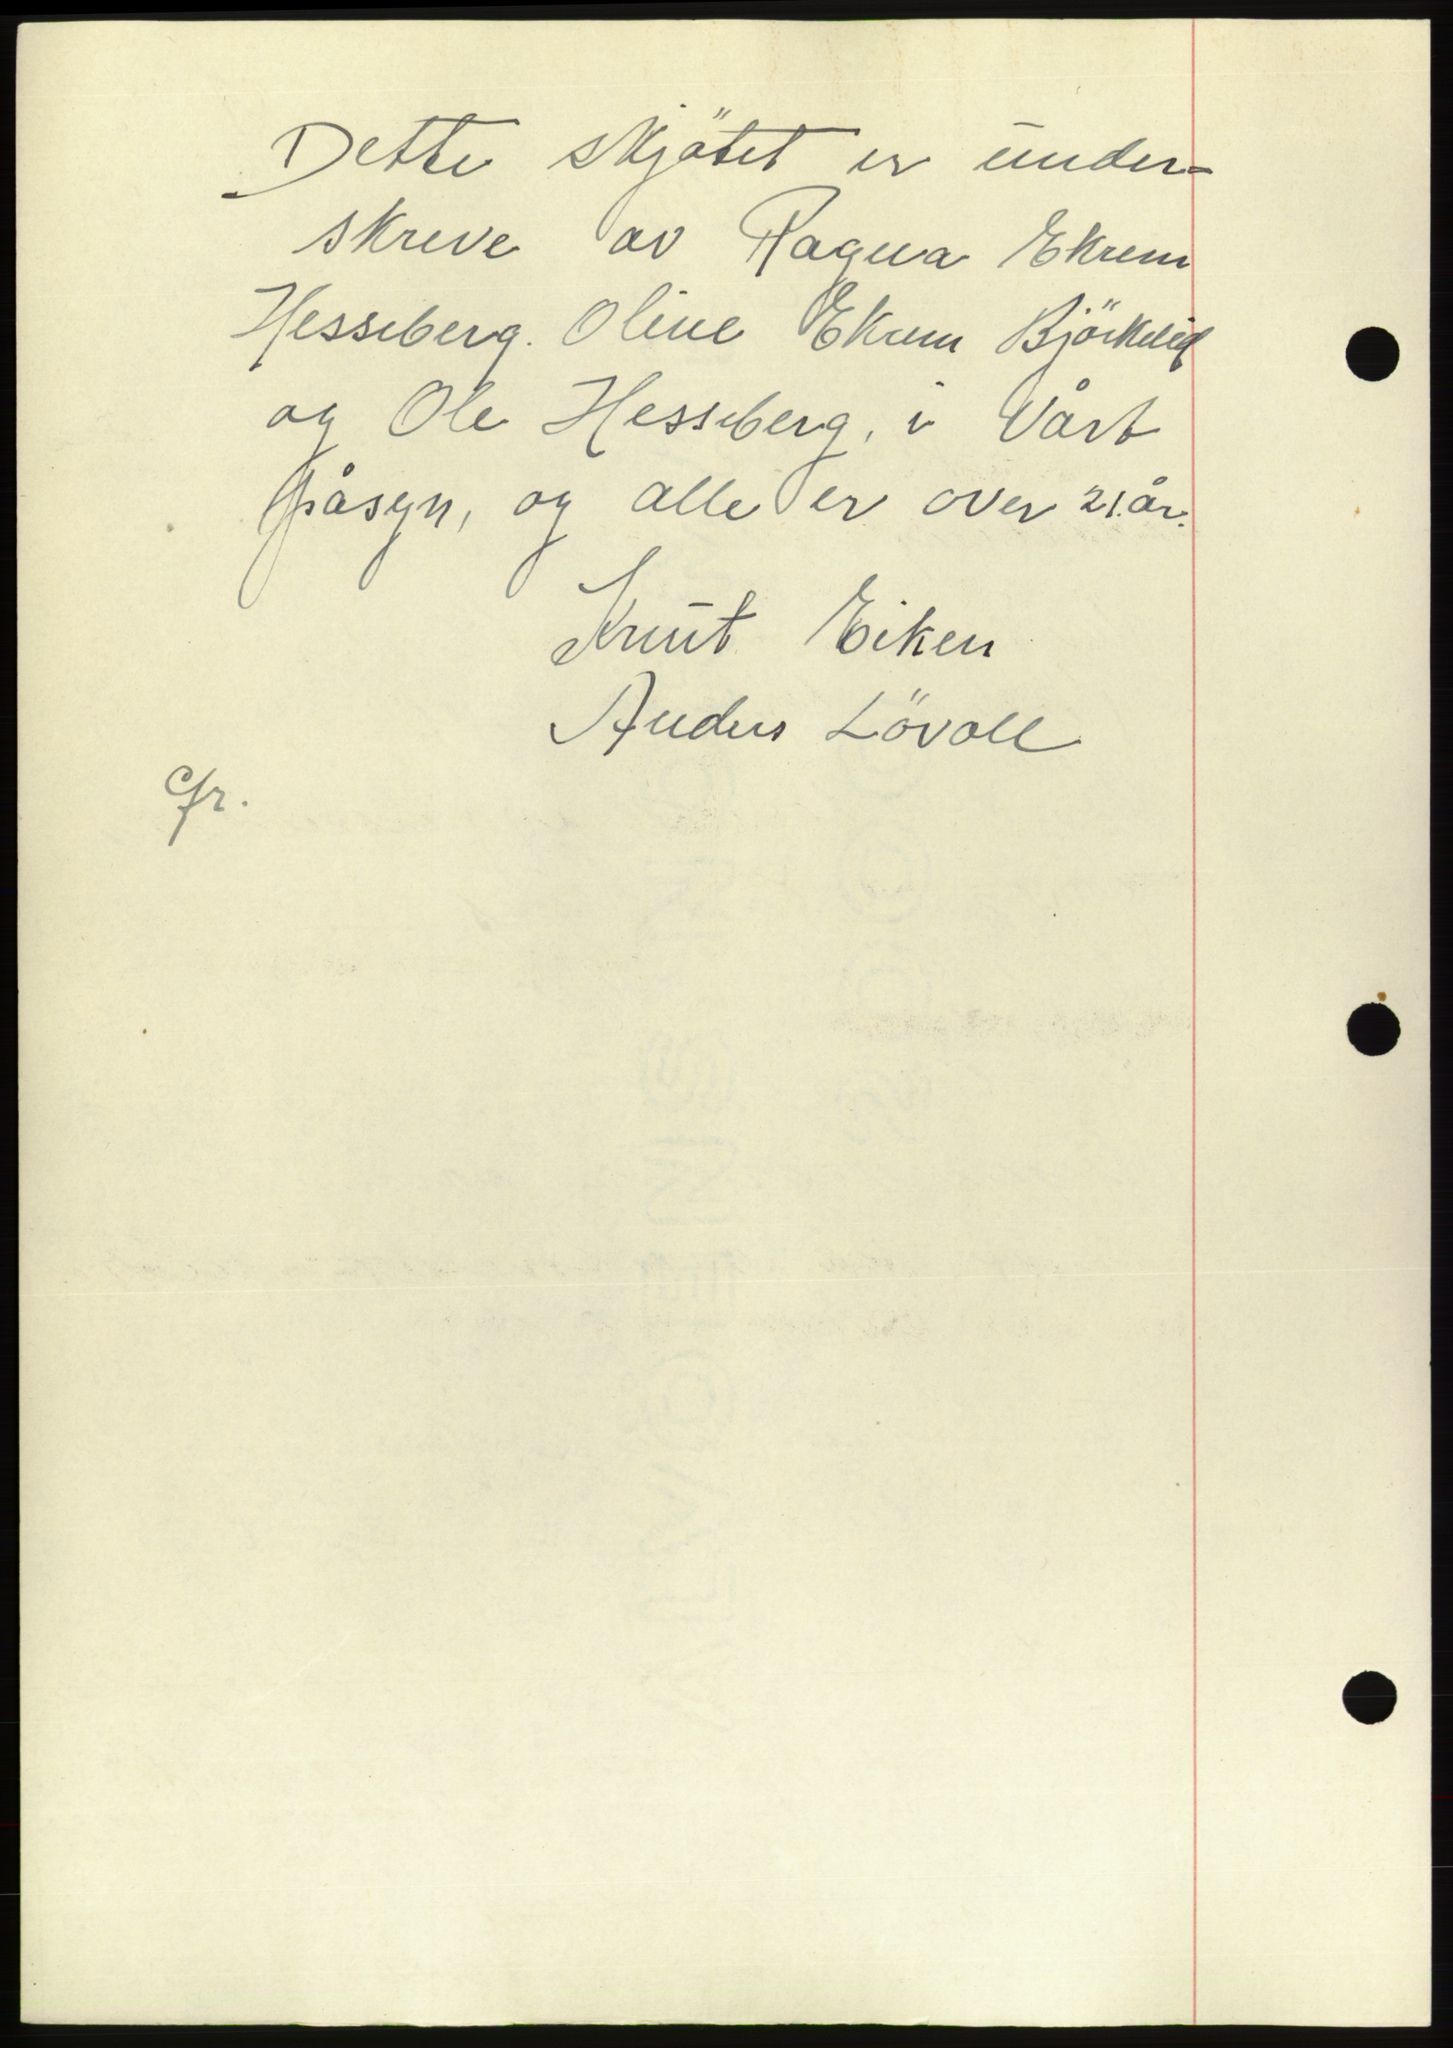 Dette skjötet er under-
skreve av Ragna Ekrem
Hesseberg. Oline Ekrem Björkelid
og Ole Hesseberg, i Vårt
påsyn, og alle er over 21. år.
Knut Eiken
Anders Lövoll
Cfr.